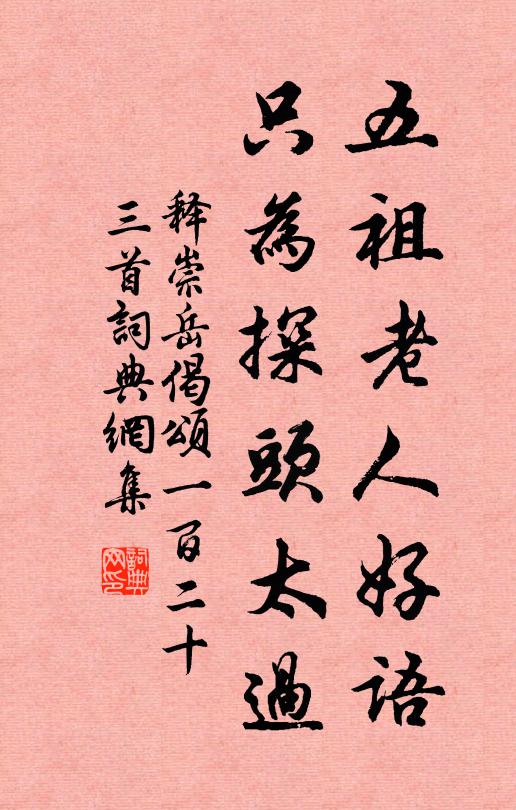 五祖老人好語
只為探頭太過
释崇岳偈頌一百二十
三首詞典網集
詞典
网印